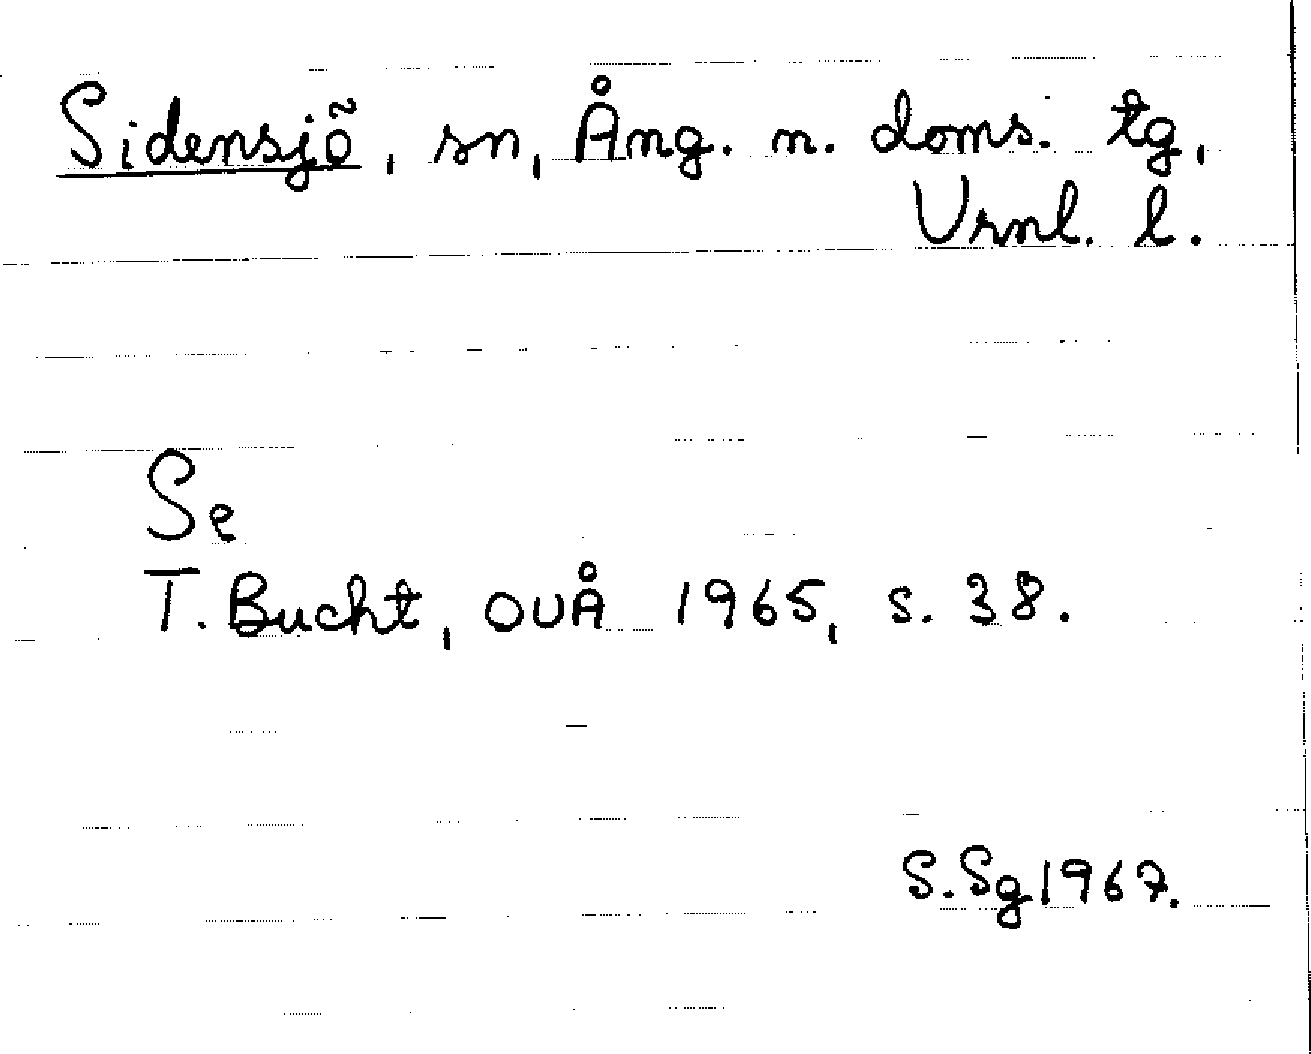 Sidensjö, sn, Ång. n. doms. tg,
Vrnl. l.
Se
T. Bucht, OUÅ 1965, s. 38.
S. Sg 1967.